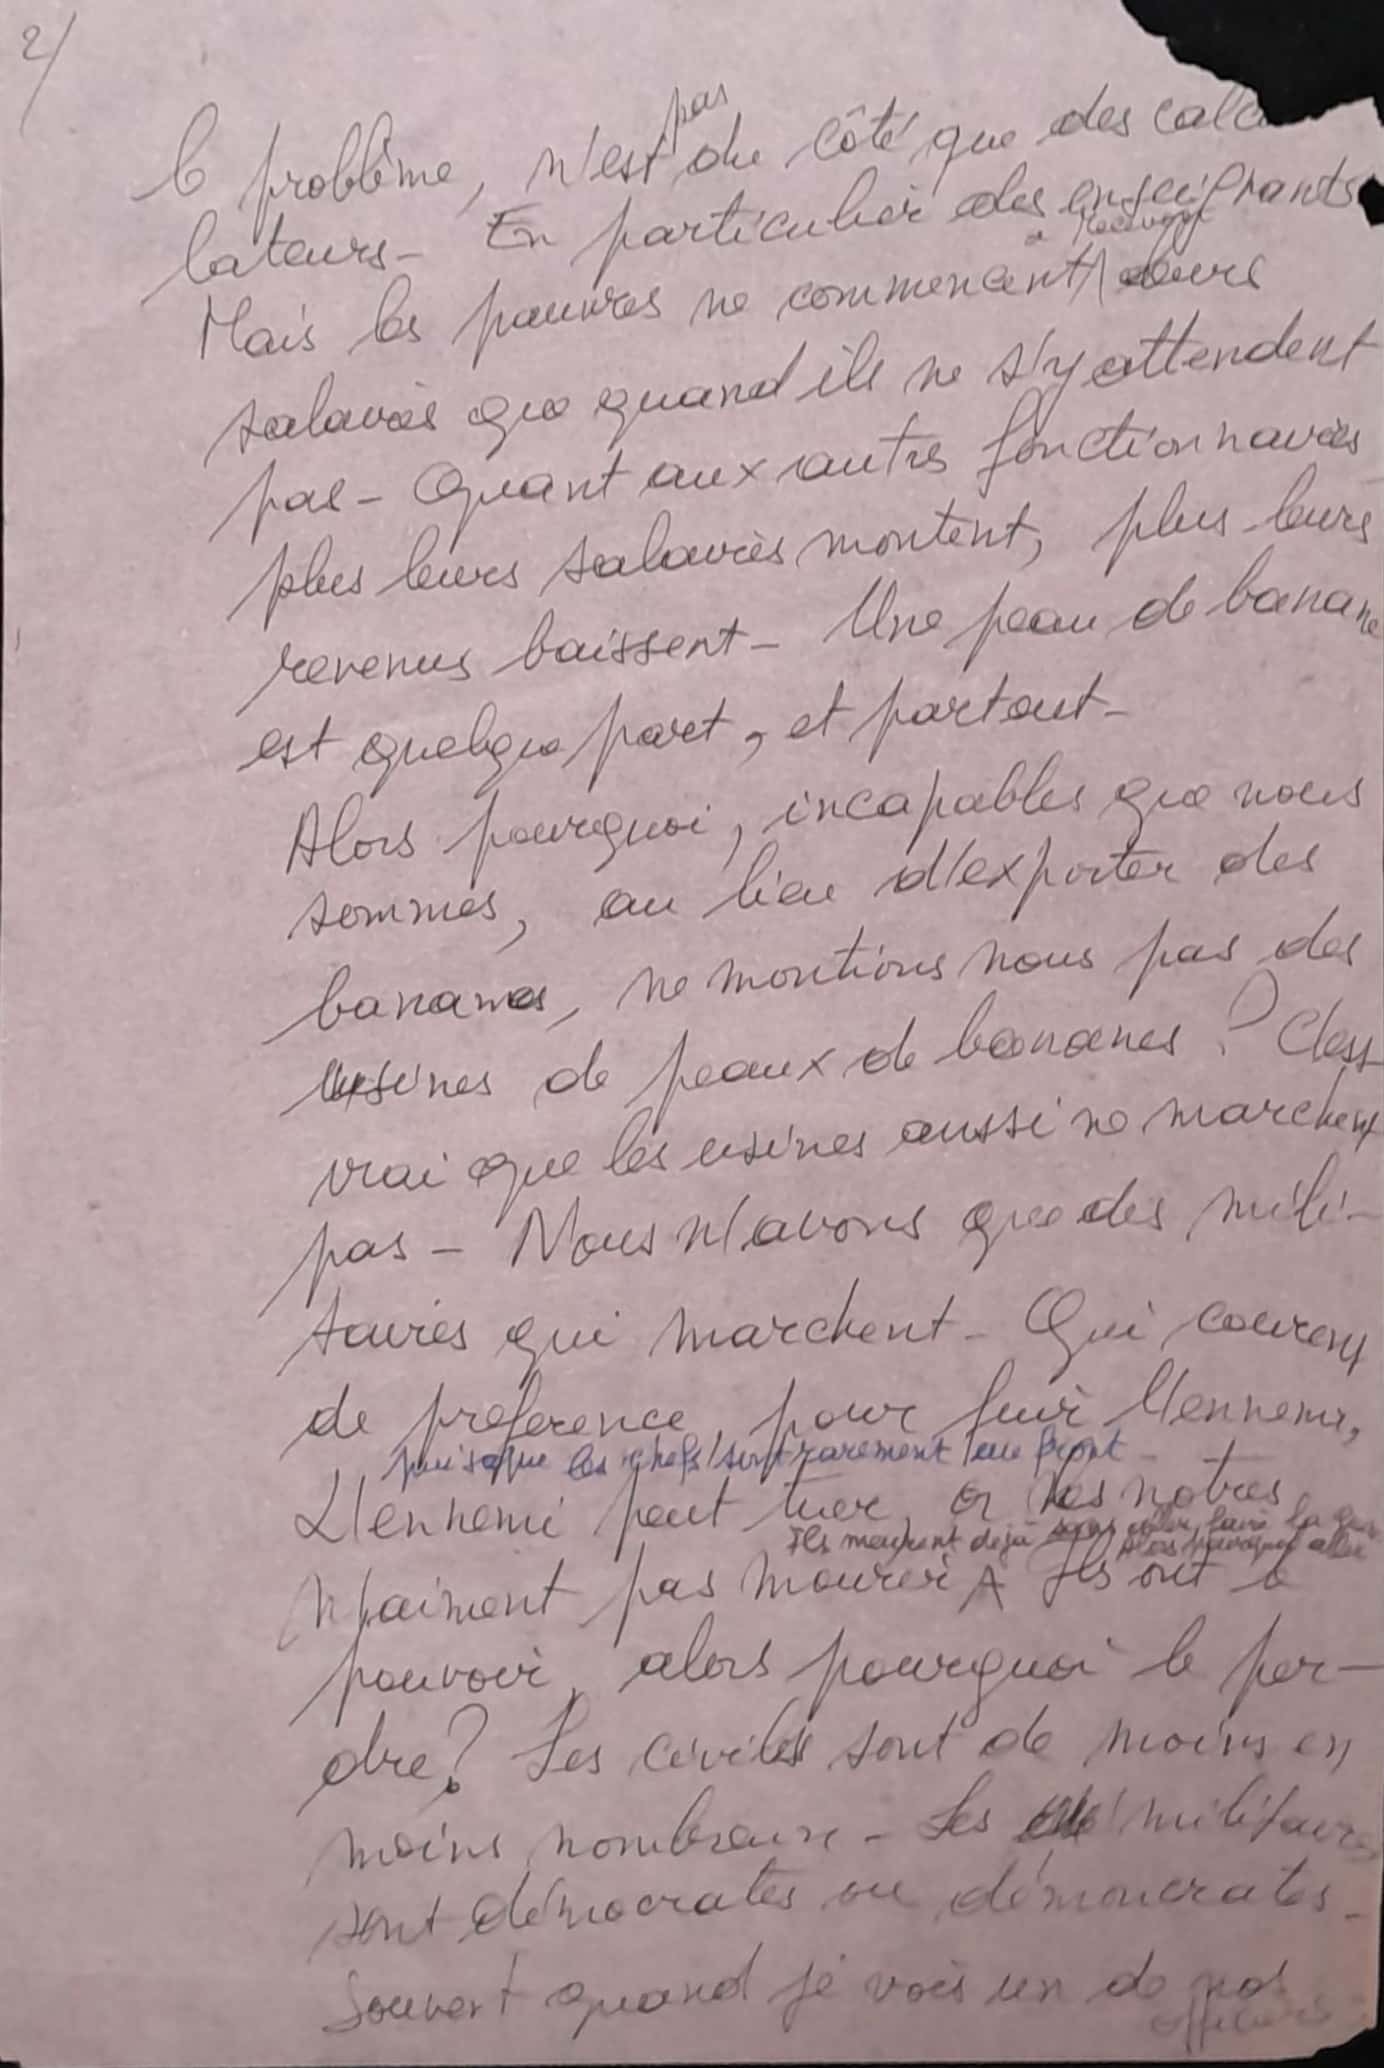 2/
le problème, n'est pas du côté que des calcu
lateurs - En particulier des enseignants
Mais les pauvres ne commencent à recevoir leurs
salaires que quand ils ne s'y attendent
pas - Quant aux autres fonctionnaires
plus leurs salaires montent, plus leurs
revenus baissent - Une peau de banane
est quelque part, et partout -
Alors pourquoi, incapables que nous
sommes, au lieu d'exporter des
bananes, ne montions nous pas des
usines de peaux de bananes ? C'est
vrai que les usines aussi ne marchent
pas - Nous n'avons que des mili-
taires qui marchent - Qui courent
de préférence, pour fuir l'ennemi,
puisque les chefs sont rarement au front -
L'ennemi peut tuer, or les nôtres
Ils meurent déjà sans aller faire la
Alors pourquoi aller
n'aiment pas mourir Ils ont le
pouvoir, alors pourquoi le per-
dre ? Les civils sont de moins en
moins nombreux - Les militaires
sont démocrates ou démoncrates -
Souvent quand je vois un de nos
officiers